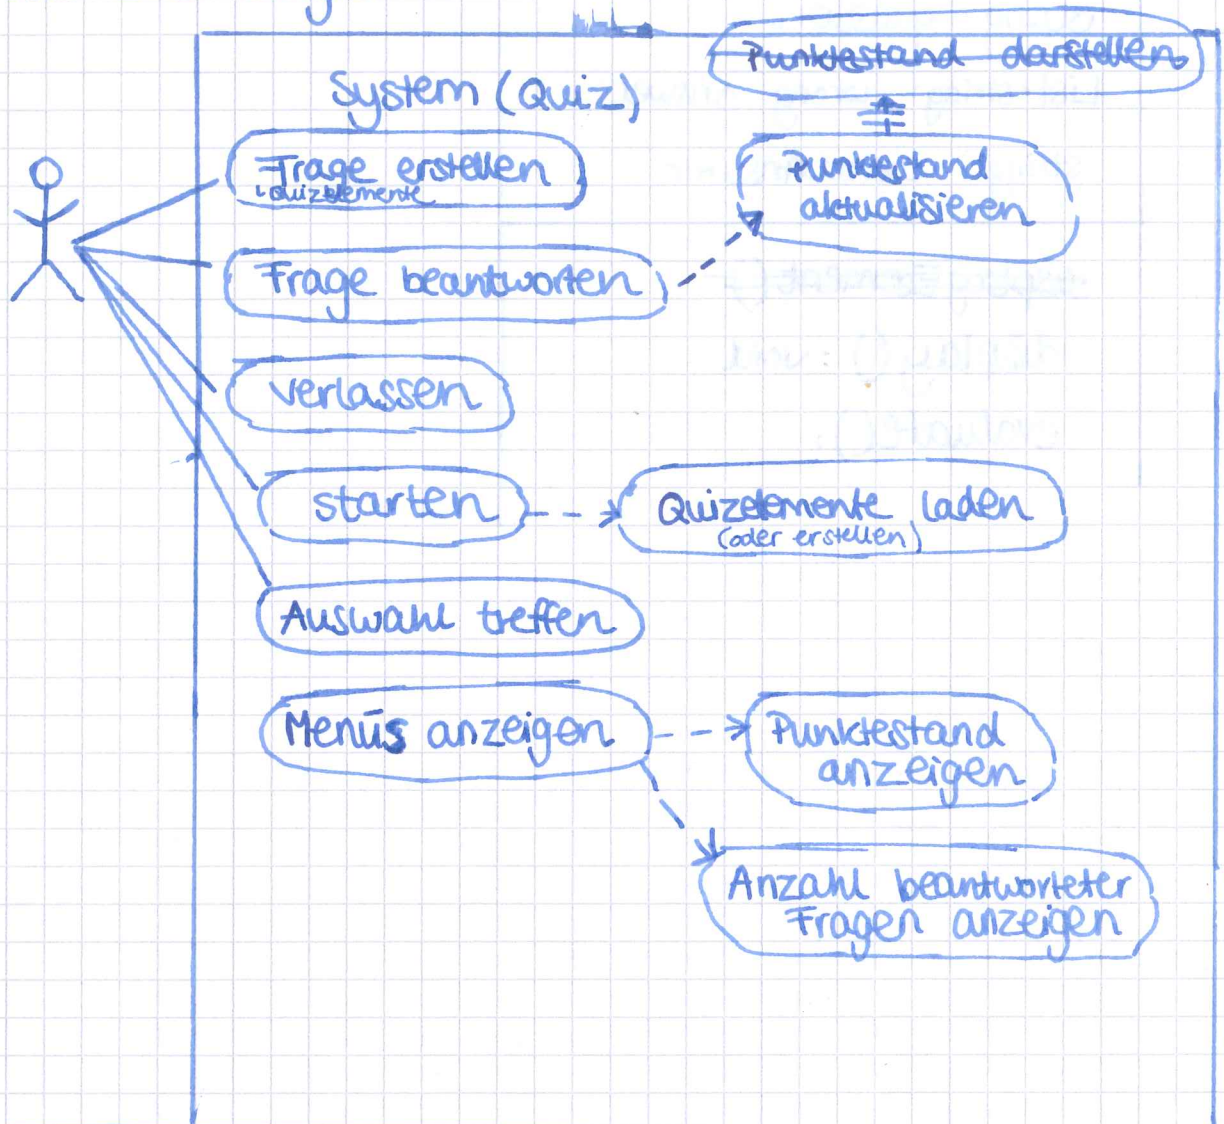 Punktestand darstellen
System (Quiz)
Frage erstellen
Quizelemente
Punktestand
aktualisieren
Frage beantworten
verlassen
starten
Quizelemente laden
(oder erstellen)
Auswahl treffen
Menüs anzeigen
Punktestand
anzeigen
Anzahl beantworteter
Fragen anzeigen